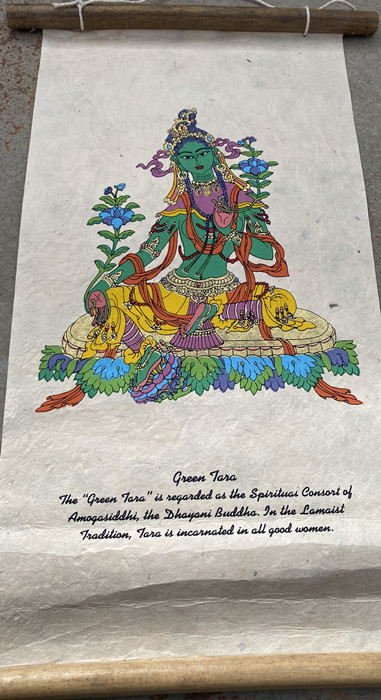 Green Tara
The "Green Tara" is regarded as the Spirituai Consort of
Amogasiddhi, the Dhayani Buddha. In the Lamaist
Tradition, Tara is incarnated in all good women.